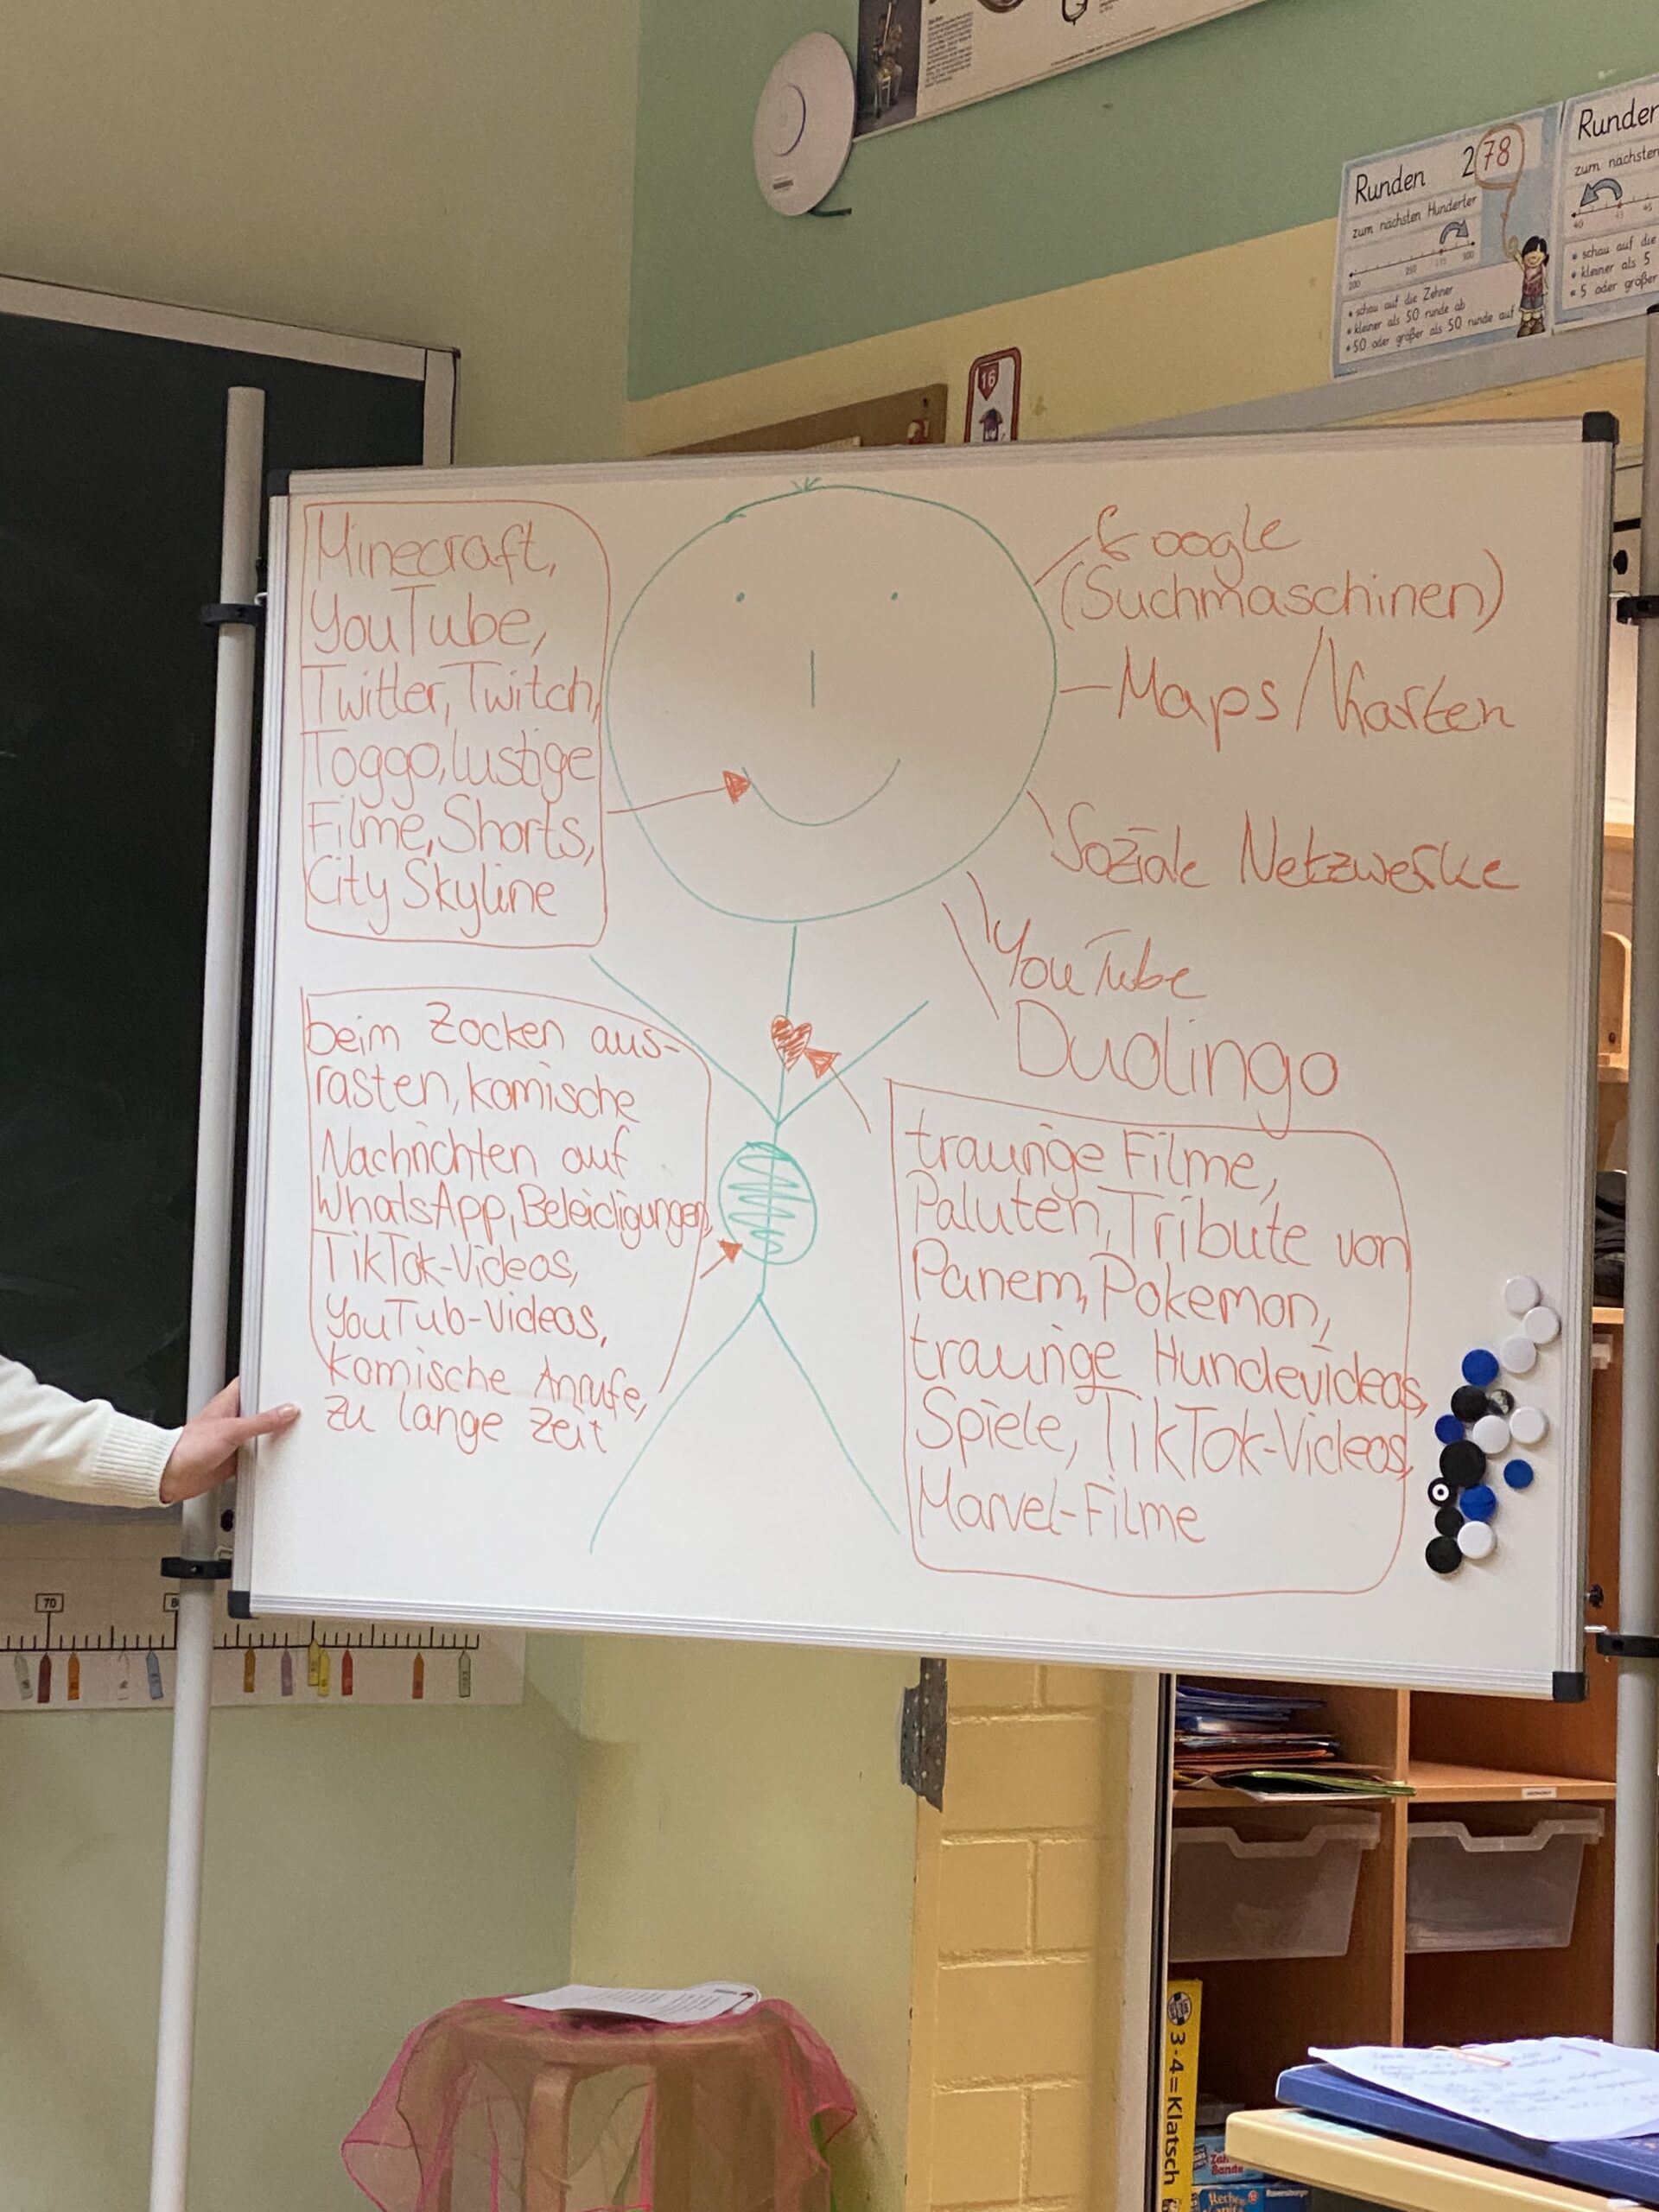 Runden 278
zum nächsten Hunderter
200 250 300
• schau auf die Zehner
• kleiner als 50 runde ab
• 50 oder größer als 50 runde auf
Runden
zum nächsten
40 43 45
• schau auf die
• kleiner als 5
• 5 oder größer
16
Minecraft,
YouTube,
Twitter, Twitch,
Toggo, lustige
Filme, Shorts,
City Skyline
Google
(Suchmaschinen)
Maps/Karten
Soziale Netzwerke
YouTube
Duolingo
beim Zocken aus-
rasten, komische
Nachrichten auf
WhatsApp, Beleidigungen,
TikTok-Videos,
YouTub-Videos,
komische Anrufe,
zu lange Zeit
traurige Filme,
Paluten, Tribute von
Panem, Pokemon,
traurige Hundevideos,
Spiele, TikTok-Videos,
Marvel-Filme
70
3·4=Klatsch